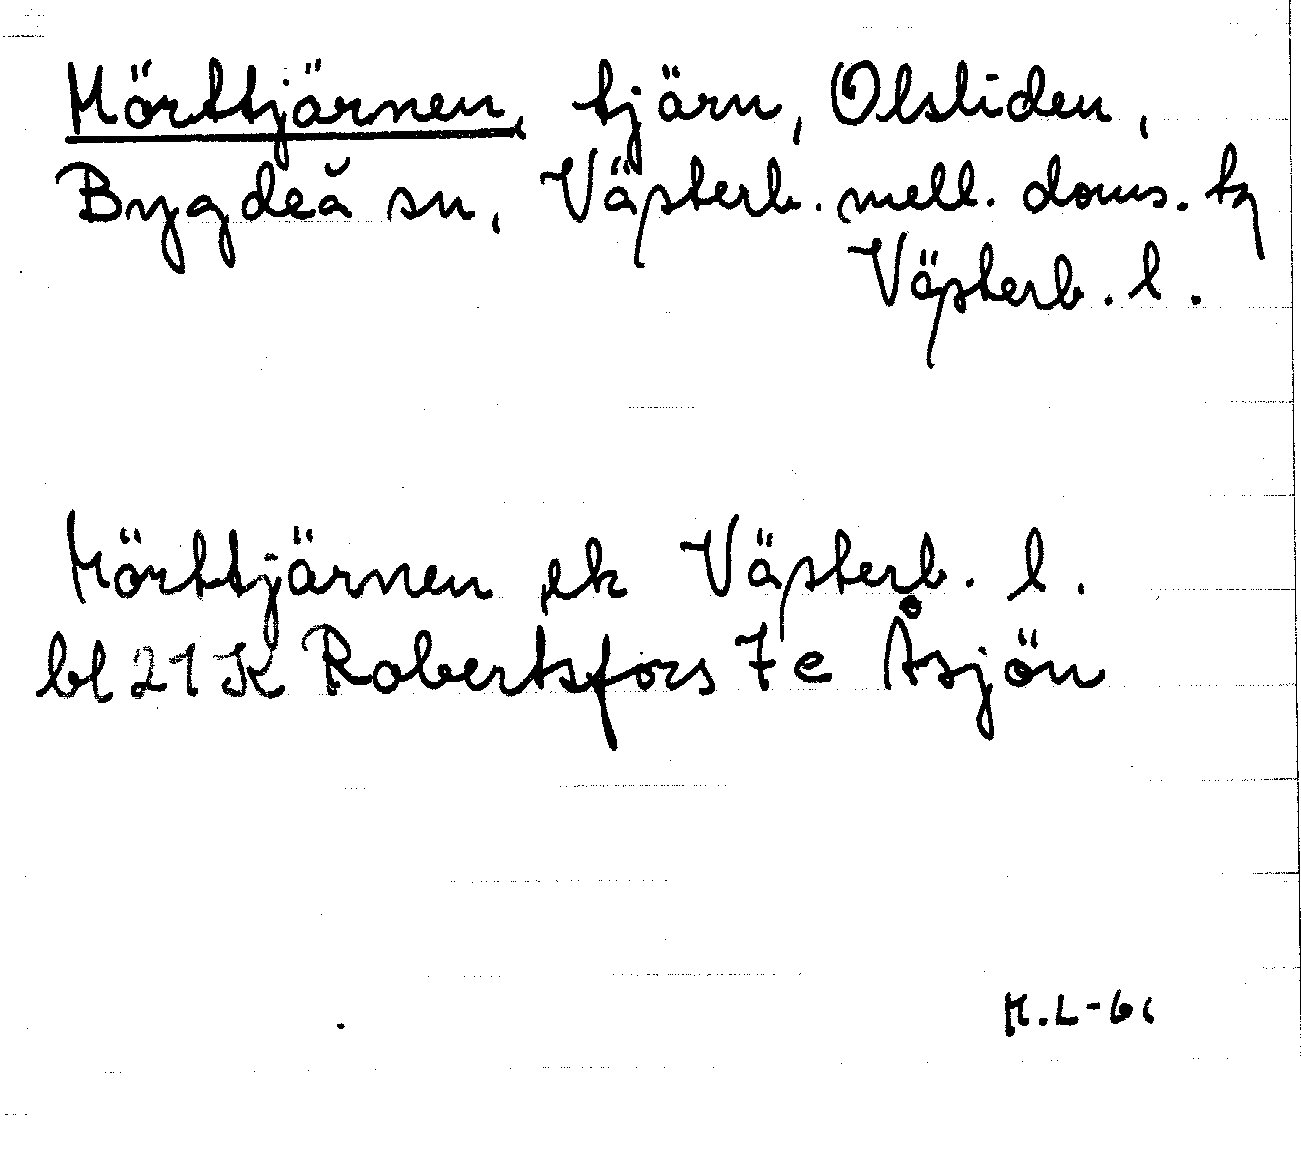 Mörttjärnen, tjärn, Olsliden,
Bygdeå sn, Västerb. mell. doms. tg
Västerb. l.
Mörttjärnen ek Västerb. l.
bl 21 K Robertsfors 7 e Åsjön
M.L-61